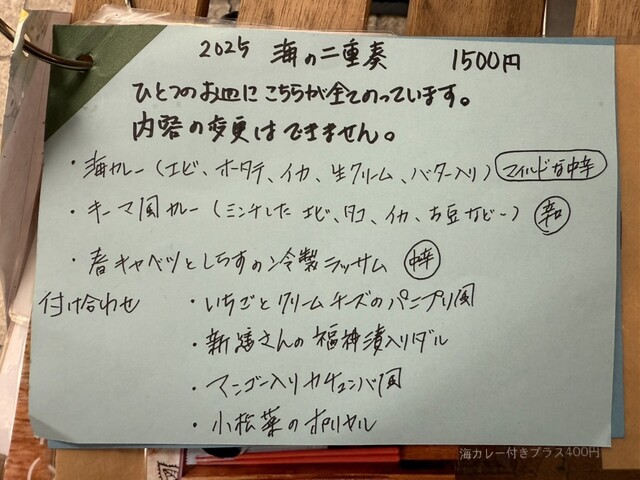 2025 海の二重奏 1500円
ひとつのお皿にこちらが全てのっています。
内容の変更はできません。
・海カレー(エビ、ホタテ、イカ、生クリーム、バター入り) マイルドな中辛
・キーマ風カレー(ミンチした エビ、タコ、イカ、お豆など…) 辛口
・春キャベツとしらすの冷製ラッサム 中辛
付け合わせ ・いちごとクリームチーズのパニプリ風
・新 さんの福神漬入りダル
・マンゴー入りカチュンバ風
・小松菜のポリヤル
海カレー付きプラス400円